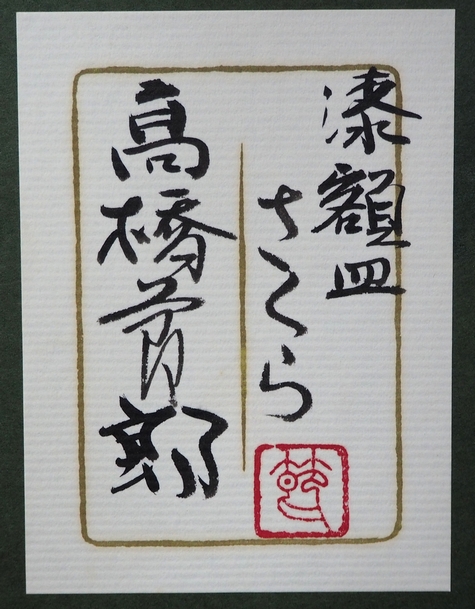 漆額皿
さくら
高橋節郎